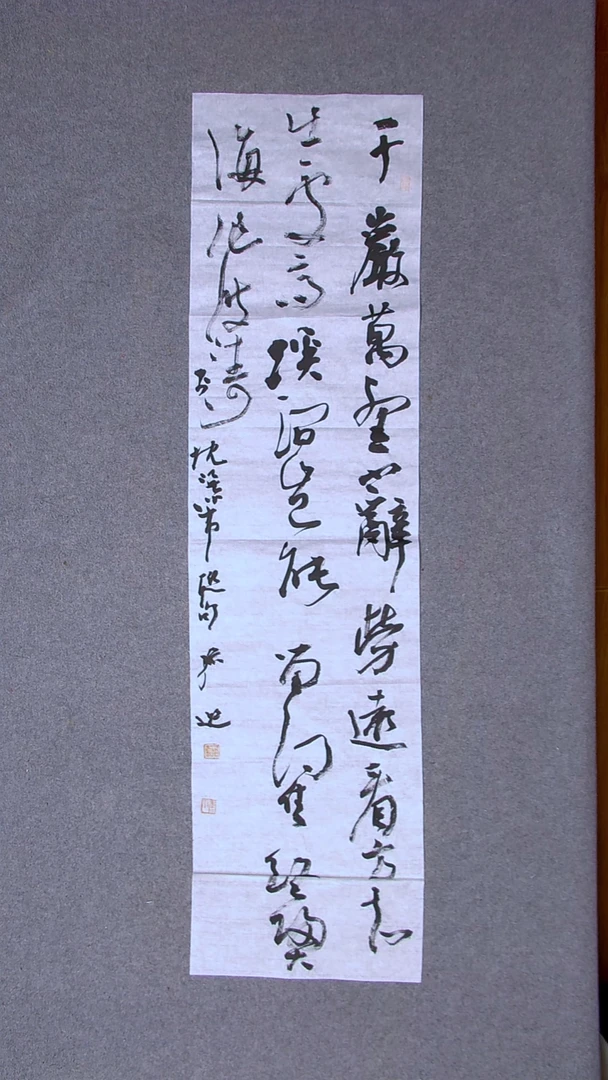 千巖萬壑不辭勞遠看方知
出處高溪澗豈能留得住終歸大
海作波濤